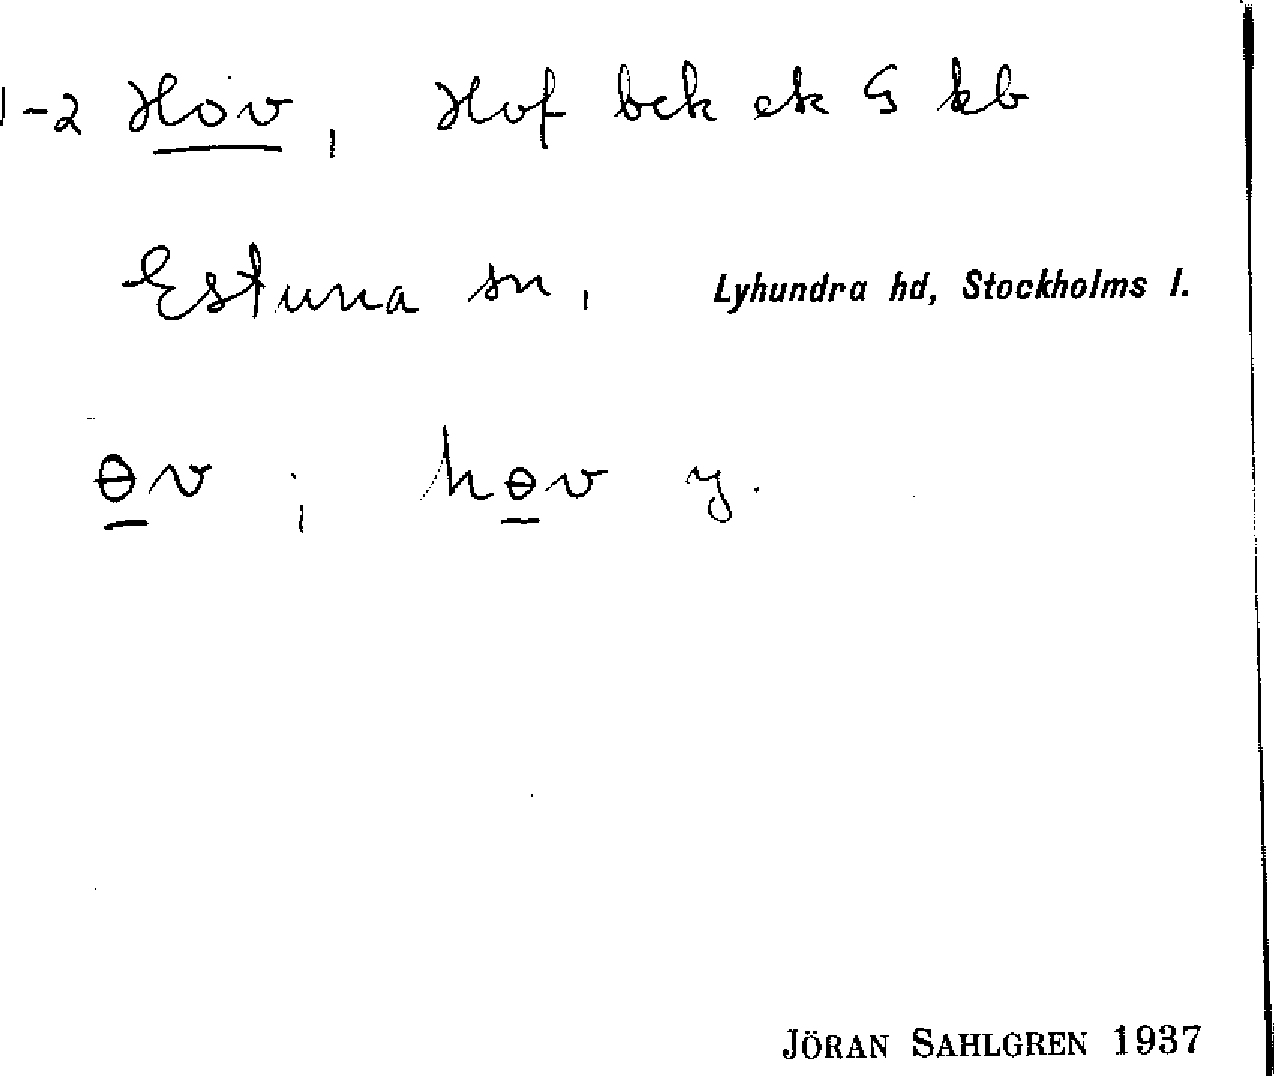 1-2 Hov, Hof bck ek G kb
Estuna sn, Lyhundra hd, Stockholms l.
ɵv ; hɵv y.
JÖRAN SAHLGREN 1937